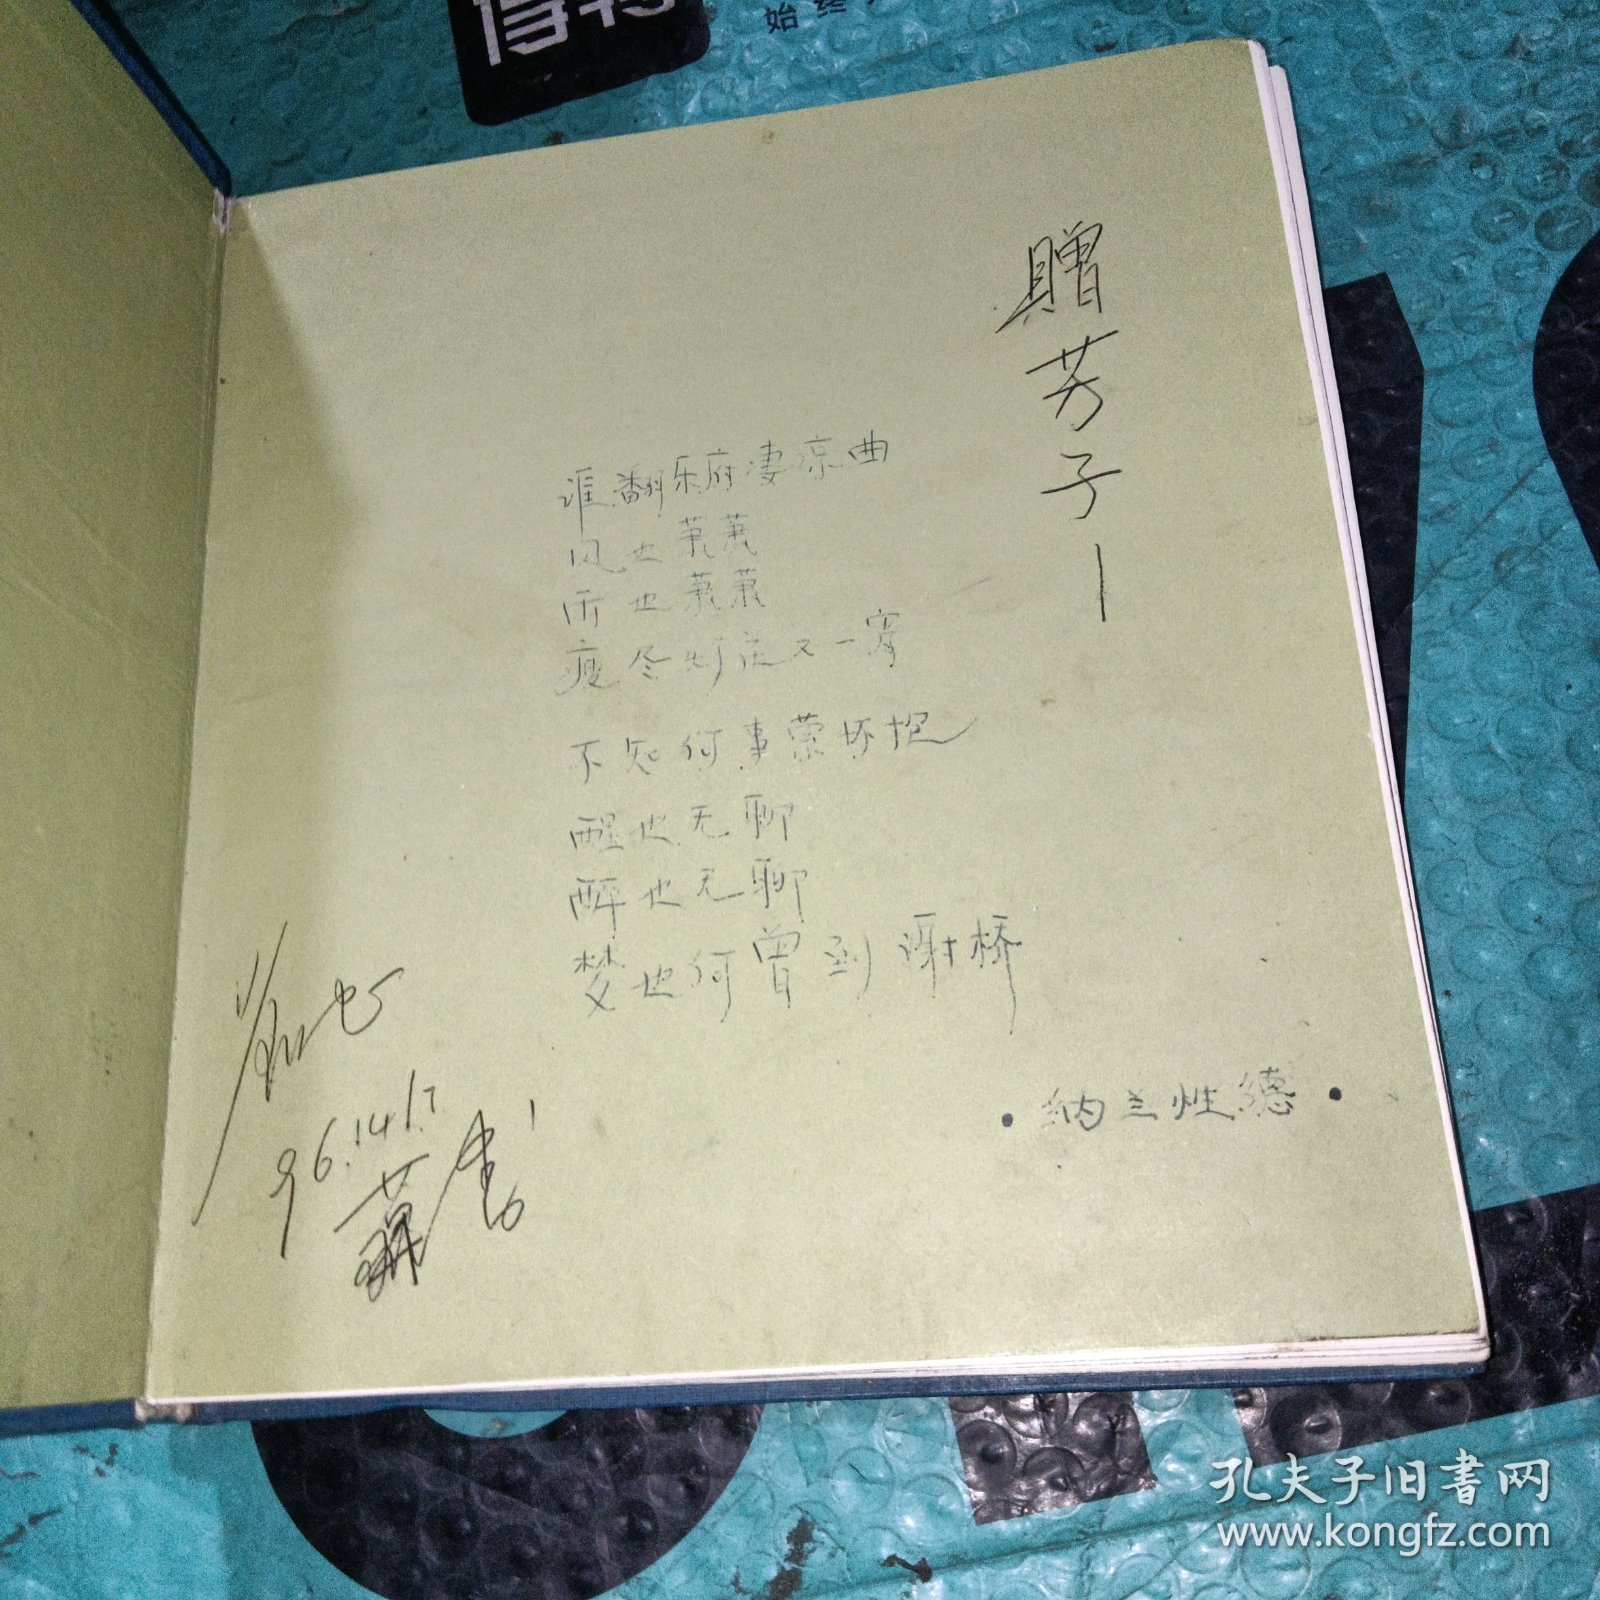 得物
始终
贈芳子
谁翻乐府凄凉曲
风也萧萧
雨也萧萧
瘦尽灯花又一宵
不知何事萦怀抱
醒也无聊
醉也无聊
梦也何曾到谢桥
·纳兰性德·
96.14/.7
孔夫子旧书网
www.kongfz.com